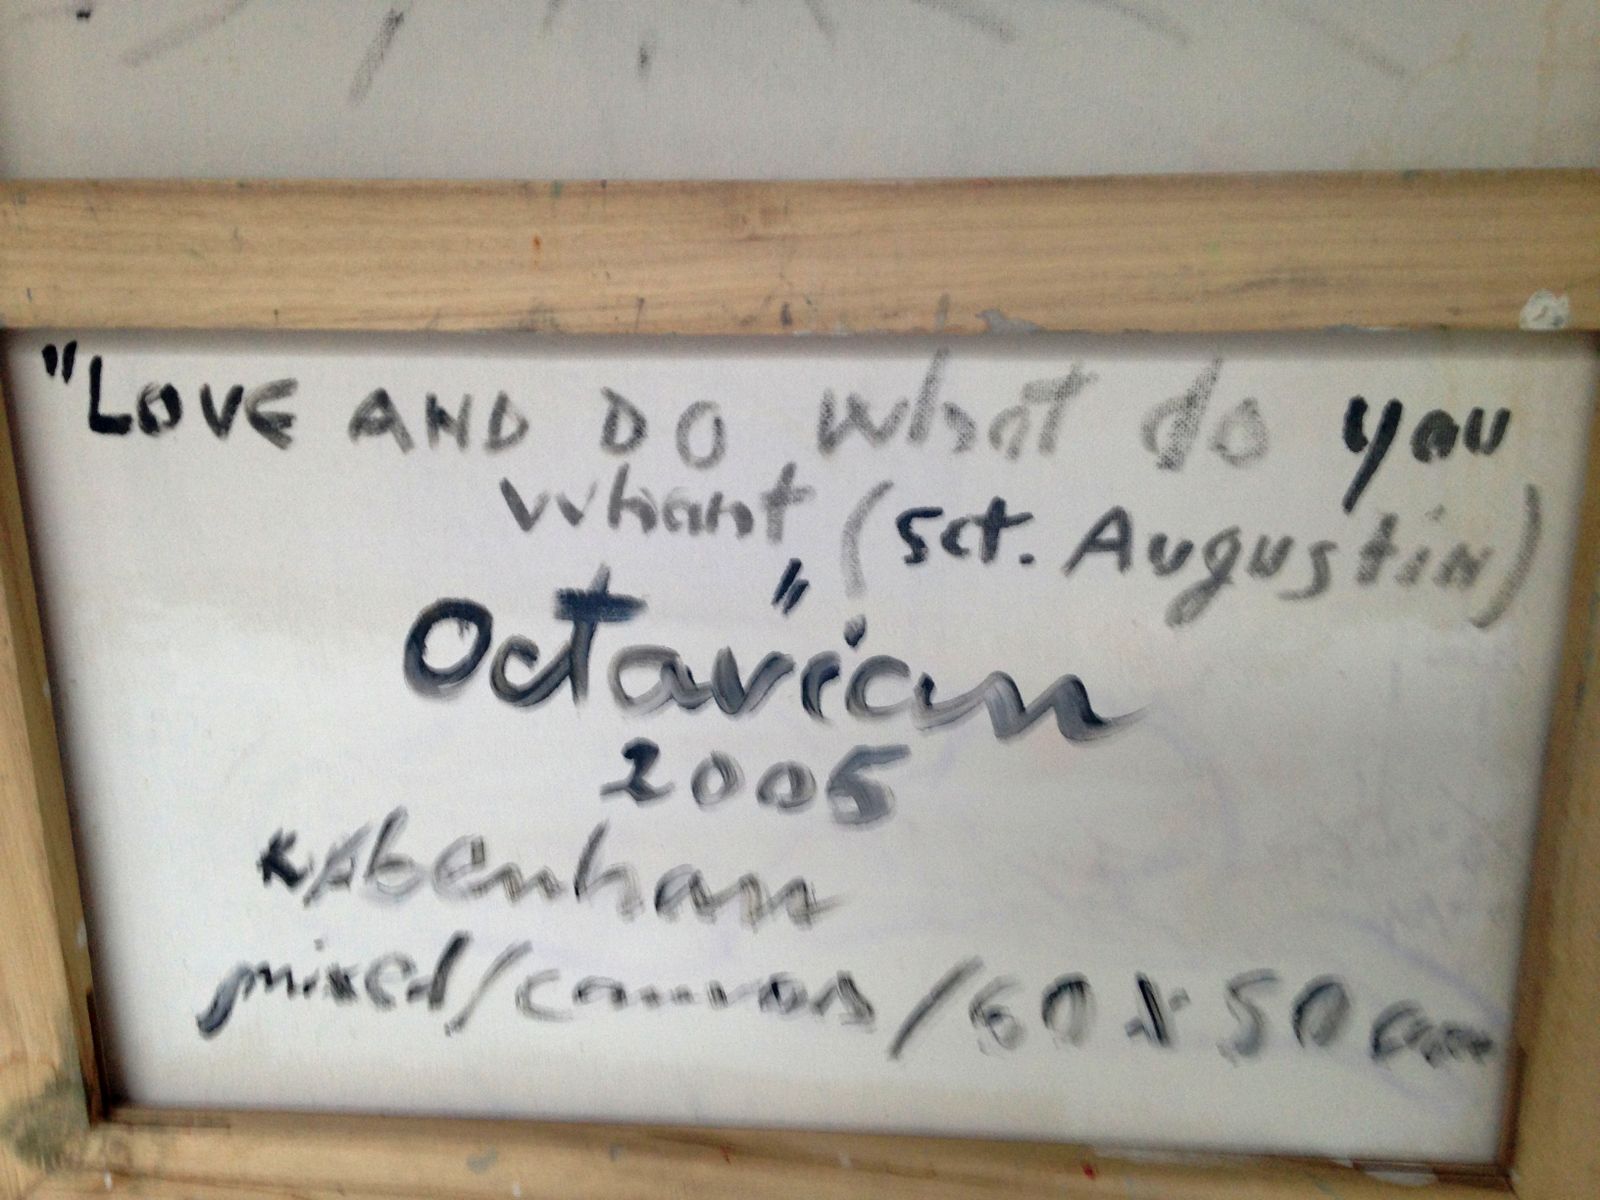 "LOVE AND DO what do you
whant" (sct. Augustin)
Octavian
2005
København
mixed/canvas/60 x 50 cm